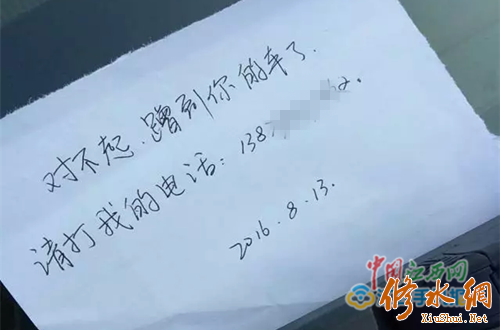 对不起.蹭到你的车了.
请打我的电话:138
2016.8.13.
中国江西网
修水網
XiuShui.Net